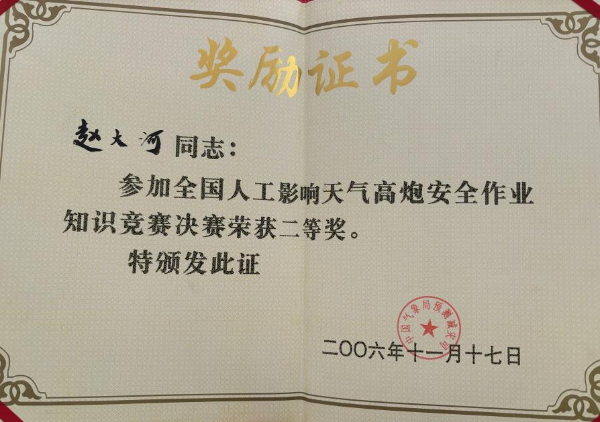 奖励证书
赵大河 同志：
参加全国人工影响天气高炮安全作业
知识竞赛决赛荣获二等奖。
特颁发此证
中国气象局预测减灾司
二〇〇六年十一月十七日